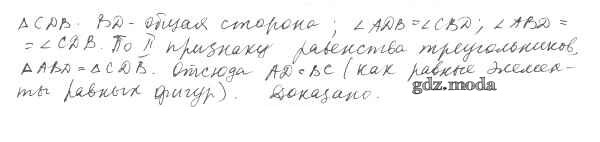 △CDB. BD - общая сторона; ∠ADB = ∠CBD; ∠ABD =
= ∠CDB. По II признаку равенства треугольников,
△ABD = △CDB. Отсюда AD = BC (как равные элемен-
ты равных фигур). Доказано.
gdz.moda